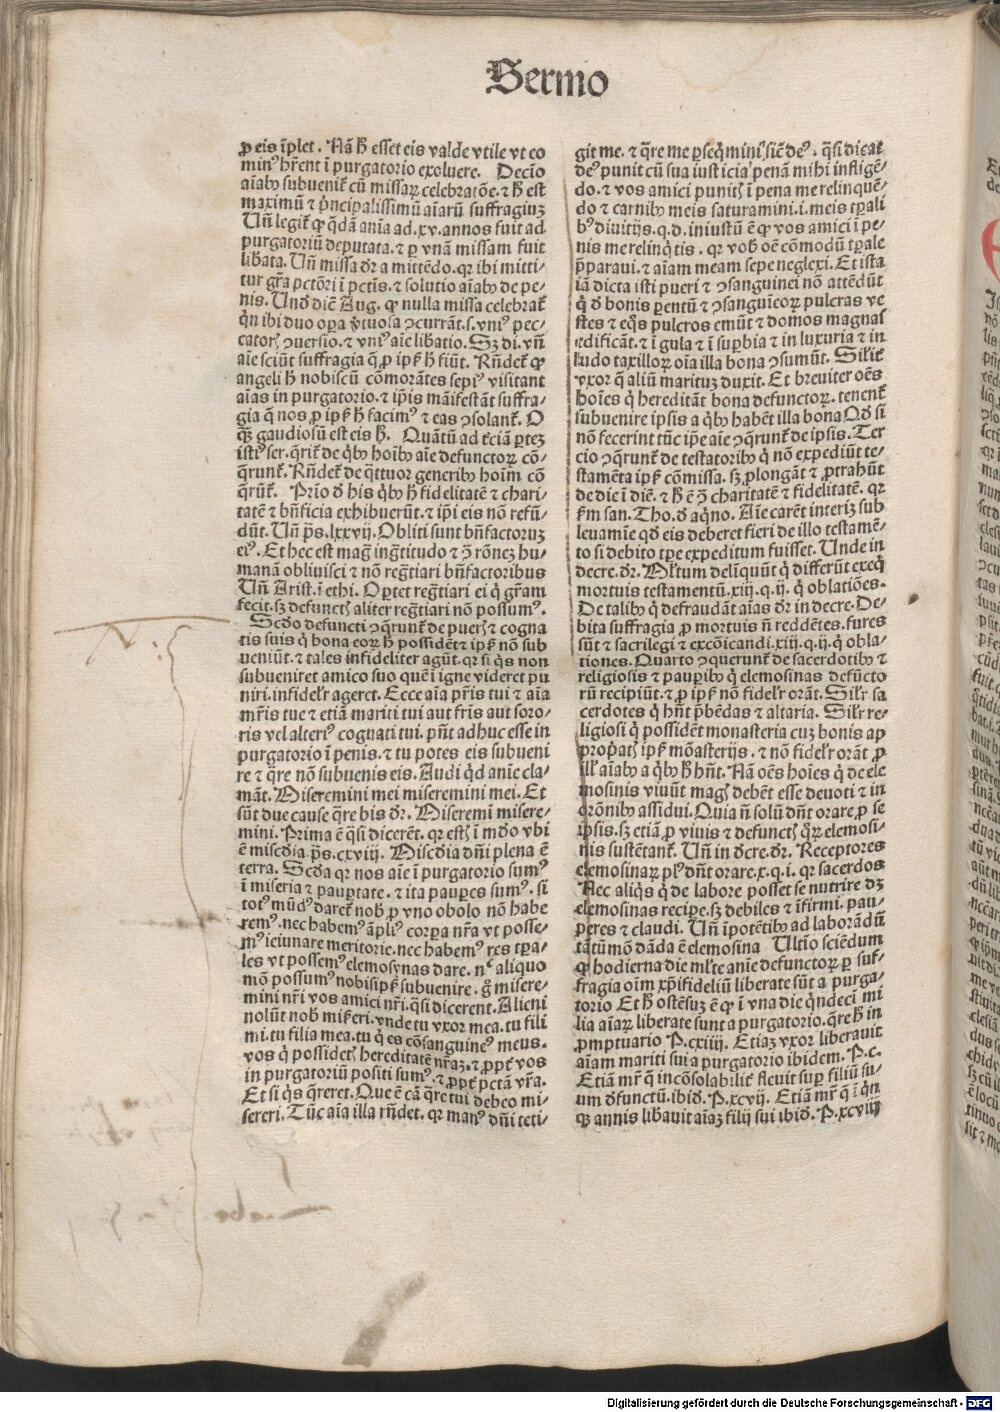 Sermo
ꝓ eis īplet . Nā h̄ esset eis valde vtile vt eo
minꝰ hr̄ent ī purgatorio exoluere. Decīo
aīabꝫ subuenit̄ cū missaꝝ celebratōe.⁊ h̄ est
maximū ⁊ pͥncipalissimū aīarū suffragiuꝫ
Uñ legit̄ ꝙ q̄dā anīa ad.xv.annos fuit ad
purgatoriū deputata.⁊ ꝑ vnā missam fuit
libata. Uñ missa dr̄ a mittēdo.qꝛ ibi mitti/
tur gr̄a pctōri ī pctīs.⁊ solutio aīabꝫ de pe/
nis. Und̄ diē Aug. ꝙ nulla missa celebrat̄
qͥn ibi duo oꝑa v̄tuosa ꝯcurrāt.s.vniꝰ pec/
catorꝭ ꝯuersio.⁊ vniꝰ aīe libatio. Sꝫ di. vñ
aīe sciūt suffragia q̄ ꝓ ipsꝭ h̄ fiūt. Rn̄det̄ ꝙ
angeli h̄ nobiscū cōmorātes sepiꝰ visitant
aīas in purgatorio.⁊ ip̄is māifestāt suffra/
gia q̄ nos ꝓ ipsꝭ h̄ facimꝰ ⁊ eas ꝯsolant̄. O
qꝫ gaudiosū est eis h̄. Quātū ad t̄ciā ꝑteꝫ
istiꝰ ser.q̄rit̄ de qͥbꝫ hoībꝫ aīe defunctoꝝ cō/
q̄runt̄. Rn̄det̄ de q̄ttuor generibꝫ hoīm cō
q̄rūt̄. Prīo d̄ his qͥbꝫ h̄ fidelitatē ⁊ chari/
tatē ⁊ bn̄ficia exhibuerūt.⁊ ip̄i eis nō refū/
dūt. Uñ ps̄.lxxvij. Obliti sunt bn̄factoruꝫ
eiꝰ. Et hec est maḡ ing̃titudo ⁊ ꝯ̄ rōneꝫ hu/
manā obliuisci ⁊ nō reg̃tiari bn̄factoribus
Uñ Arist.ī ethi. Oꝑtet reg̃tiari ei qͥ gr̄am
fecit.sꝫ defunctꝭ aliter reg̃tiari nō possumꝰ.
Scd̄o defuncti ꝯq̄runt̄ de puerꝭ ⁊ cogna
tis suis qͥ bona eoꝝ h̄ possidēt ⁊ ipsꝭ nō sub
ueniūt.⁊ tales infideliter agūt.qꝛ si qͥs non
subueniret amico suo quē ī igne videret pu
niri.infidelr̄ ageret. Ecce aīa pr̄is tui ⁊ aīa
mr̄is tue ⁊ etiā mariti tui aut fr̄is aut soro/
ris vel alteriꝰ cognati tui. pn̄t adhuc esse in
purgatorio ī penis.⁊ tu potes eis subueni
re ⁊ q̄re nō subuenis eis. Audi qͥd anīe cla/
māt. Miseremini mei miseremini mei. Et
sūt due cause q̄re bis dr̄. Miseremī misere/
mini. Prima ē q̄si dicerēt.qꝛ estꝭ ī mūdo vbi
ē miscd̄ia. ps̄.cxviij. Miscd̄ia dn̄i plena ē
terra. Scd̄a qꝛ nos aīe ī purgatorio sumꝰ
ī miseria ⁊ pauꝑtate.⁊ ita pauꝑes sumꝰ. si
totꝰ mūdꝰ daret̄ nob̄ ꝓ vno obolo nō habe
remꝰ.nec habemꝰ āpliꝰ corꝑa nr̄a vt posse/
mꝰ ieiunare meritorie.nec habemꝰ res tꝑa/
les vt possemꝰ elemosynas dare. nᶜ aliquo
mō possumꝰ nobisipsꝭ subuenire.g̊ misere/
mini nr̄i vos amici nr̄i.q̄si dicerent. Alieni
nolūt nob̄ mis̄eri.vnde tu vxor mea.tu fili
mi.tu filia mea.tu qͥ es cōsanguineꝰ meus.
vos qͥ possidetꝭ hereditatē nr̄aꝫ.⁊ ꝓpt̄ vos
in purgatoriū positi sumꝰ.⁊ ꝓpt̄ pctā vr̄a.
Et si qͥs q̄reret. Que ē cā q̄re tui debeo mi/
sereri. Tūc aīa illa rn̄det. qꝛ manꝰ dn̄i teti/
git me.⁊ q̄re me ꝑseqͥminiꝰ sic̄ deꝰ. q̄si dicat
deꝰ punit cū sua iusticia penā mihi infligē/
do.⁊ vos amici punitꝭ ī pena me relinquē/
do ⁊ carnibꝫ meis saturamini.i.meis tꝑali
bꝰ diuitijs.q.d.iniustū ē ꝙ vos amici ī pe/
nis me relinq̄tis. qꝛ vob̄ oē cōmodū tꝑale
p̄paraui.⁊ aīam meam sepe neglexi. Et ista
iā dicta isti pueri ⁊ ꝯsanguinei nō attēdūt
qͥ d̄ bonis parentū ⁊ ꝯsanguīeoꝝ pulcras ve
stes ⁊ eq̄s pulcros emūt ⁊ domos magnas
edificāt.⁊ ī gula ⁊ ī suꝑbia ⁊ in luxuria ⁊ in
ludo taxilloꝝ oīa illa bona ꝯsumūt. Silit̄
vxor q̄ aliū maritū duxit. Et breuiter oēs
hoīes qͥ hereditāt bona defunctoꝝ.tenent̄
subuenire ipsis a qͥbꝫ habēt illa bona Qd̄ si
nō fecerint tūc ip̄e aīe ꝯq̄runt̄ de ipsis. Ter
cio ꝯq̄runt̄ de testatoribꝫ qͥ nō expediūt te/
stamēta ipsꝭ cōmissa. sꝫ ꝓlongāt ⁊ ꝓtrahūt
de die ī diē.⁊ h̄ ē ꝯ̄ charitatē ⁊ fidelitatē. qꝛ
ẜm san. Tho. d̄ aqͥno. Aīe carēt interiꝫ sub
leuamīe qd̄ eis deberet fieri de illo testamē/
to si debito tꝑe expeditum fuisset. Unde in
decre.dr̄. Mltum delīquūt qͥ differūt exeqͥ
mortuis testamentū.xiij.q.ij. qͥ oblatiōes.
De talibꝫ qͥ defraudāt aīas dr̄ in decre. De/
bita suffragia ꝓ mortuis ñ reddētes.fures
sūt ⁊ sacrilegi ⁊ excōicandi.xiij.q.ij.qͥ obla/
tiones. Quarto ꝯquerunt̄ de sacerdotibꝫ ⁊
religiosis ⁊ pauꝑibꝫ qͥ elemosinas defūcto
rū recipiūt.⁊ ꝓ ipsꝭ nō fidelr̄ orāt. Silr̄ sa
cerdotes qͥ hn̄t p̄bēdas ⁊ altaria. Silr̄ re/
ligiosi qͥ possidēt monasteria cuꝫ bonis ap
ꝓpatꝭ ipsꝭ mōasterijs.⁊ nō fidelr̄ orāt ꝓ
illꝭ aīabꝫ a qͥbꝫ h̄ hn̄t. Nā oēs hoīes qͥ de ele
mosinis viuūt magꝭ debēt esse deuoti ⁊ in
orōnibꝫ assidui. Quia ñ solū dn̄t orare ꝓ se
ipsis.sꝫ etiā ꝓ viuis ⁊ defunctꝭ qͦꝝ elemosi/
nis sustētant̄. Uñ in d̄cre.dr̄. Receptores
elemosinaꝝ plꝰ dn̄t orare.x.q.i. qꝛ sacerdos
Nec aliqͥs qͥ de labore posset se nutrire dꝫ
elemosinas reciꝑe.sꝫ debiles ⁊ īfirmi. pau/
ꝑeres ⁊ claudi. Uñ īpotētibꝫ ad laborādū
tātūmō dāda ē elemosina Ultīo sciēdum
ꝙ hodierna die ml̄te anīe defunctoꝝ ꝑ suf/
fragia oīm xp̄ifideliū liberate sūt a purga/
torio Et h̄ ostēsuꝫ ē ꝙ ī vna die qͥndecī mi
lia aīaꝝ liberate sunt a purgatorio.q̄re h̄ in
ꝓmptuario P.cxiiij. Etiaꝫ vxor liberauit
aīam mariti sui a purgatorio ibidem. P.c.
Etiā mr̄ q̄ incōsolabilit̄ fleuit suꝑ filiū su/
um d̄functū.ibid̄. P.xcvij. Etiā mr̄ q̄ ī qͥn
qꝫ annis libauit aīaꝫ filij sui ibid̄. P.xcviij
Digitalisierung gefördert durch die Deutsche Forschungsgemeinschaft - DFG